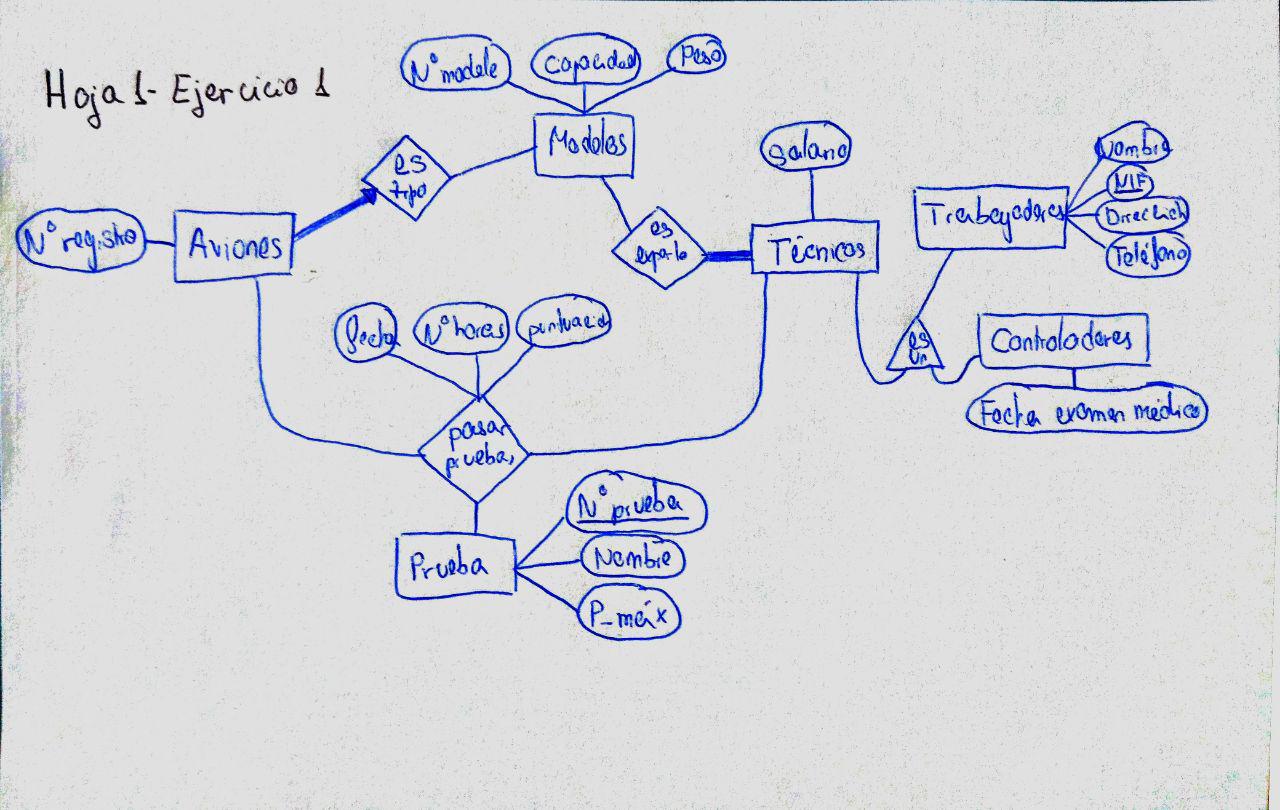 Hoja 1- Ejercicio 1
Nº modelo
capacidad
Peso
Modelos
es
tipo
Nº registro
Aviones
Salario
es
experto
Técnicos
Nombre
NIF
Dirección
Teléfono
Trabajadores
es
un
Controladores
Fecha examen médico
fecha
Nº horas
puntuació
pasar
prueba,
Prueba
Nº prueba
Nombre
P_máx